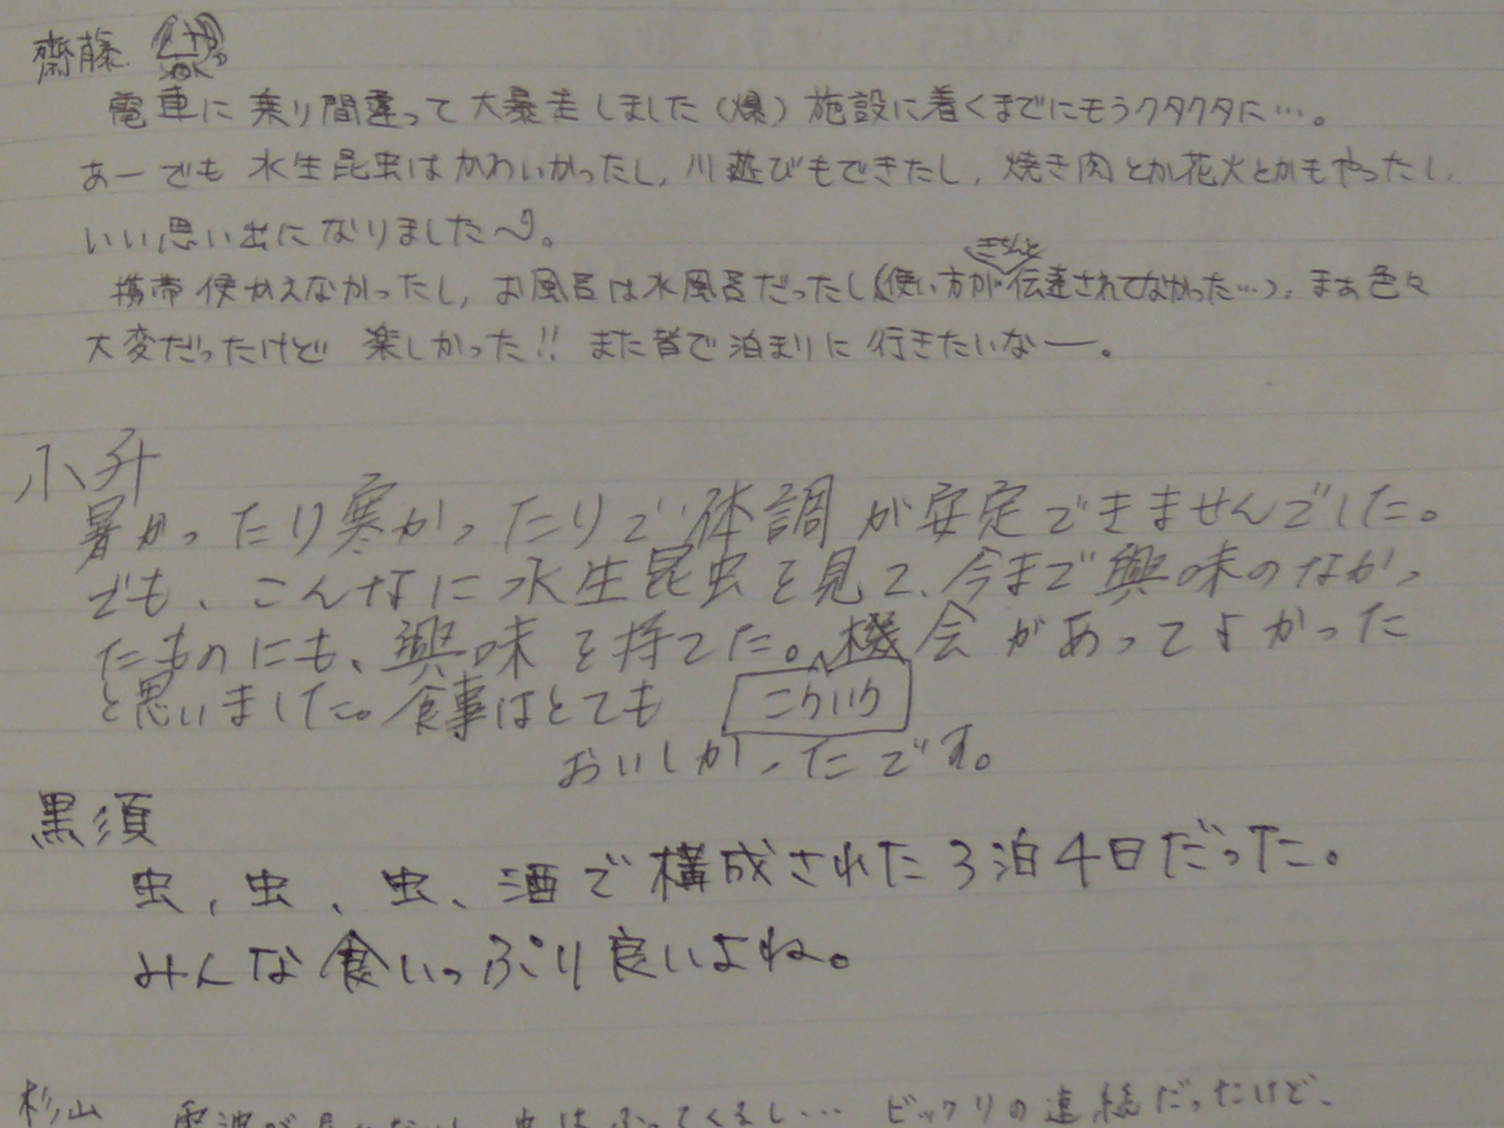 齋藤
電車に乗り間違って大暴走しました(爆) 施設に着くまでにもうクタクタに…。
あーでも 水生昆虫はかわいかったし, 川遊びもできたし, 焼き肉とか花火とかもやったし,
いい思い出になりました〜。
きちんと
携帯使かえなかったし, お風呂は水風呂だったし(使い方が伝達されてなかった…), まあ色々
大変だったけど 楽しかった!! また皆で泊まりに行きたいなー。
小升
暑かったり寒かったりで体調が安定できませんでした。
でも、こんなに水生昆虫を見て、今まで興味のなかっ
たものにも、興味を持てた。機会があってよかった
と思いました。食事はとても
おいしかったです。
黒須
虫, 虫、虫、酒で構成された3泊4日だった。
みんな食いっぷり良いよね。
杉山 ビックリの連続だったけど、